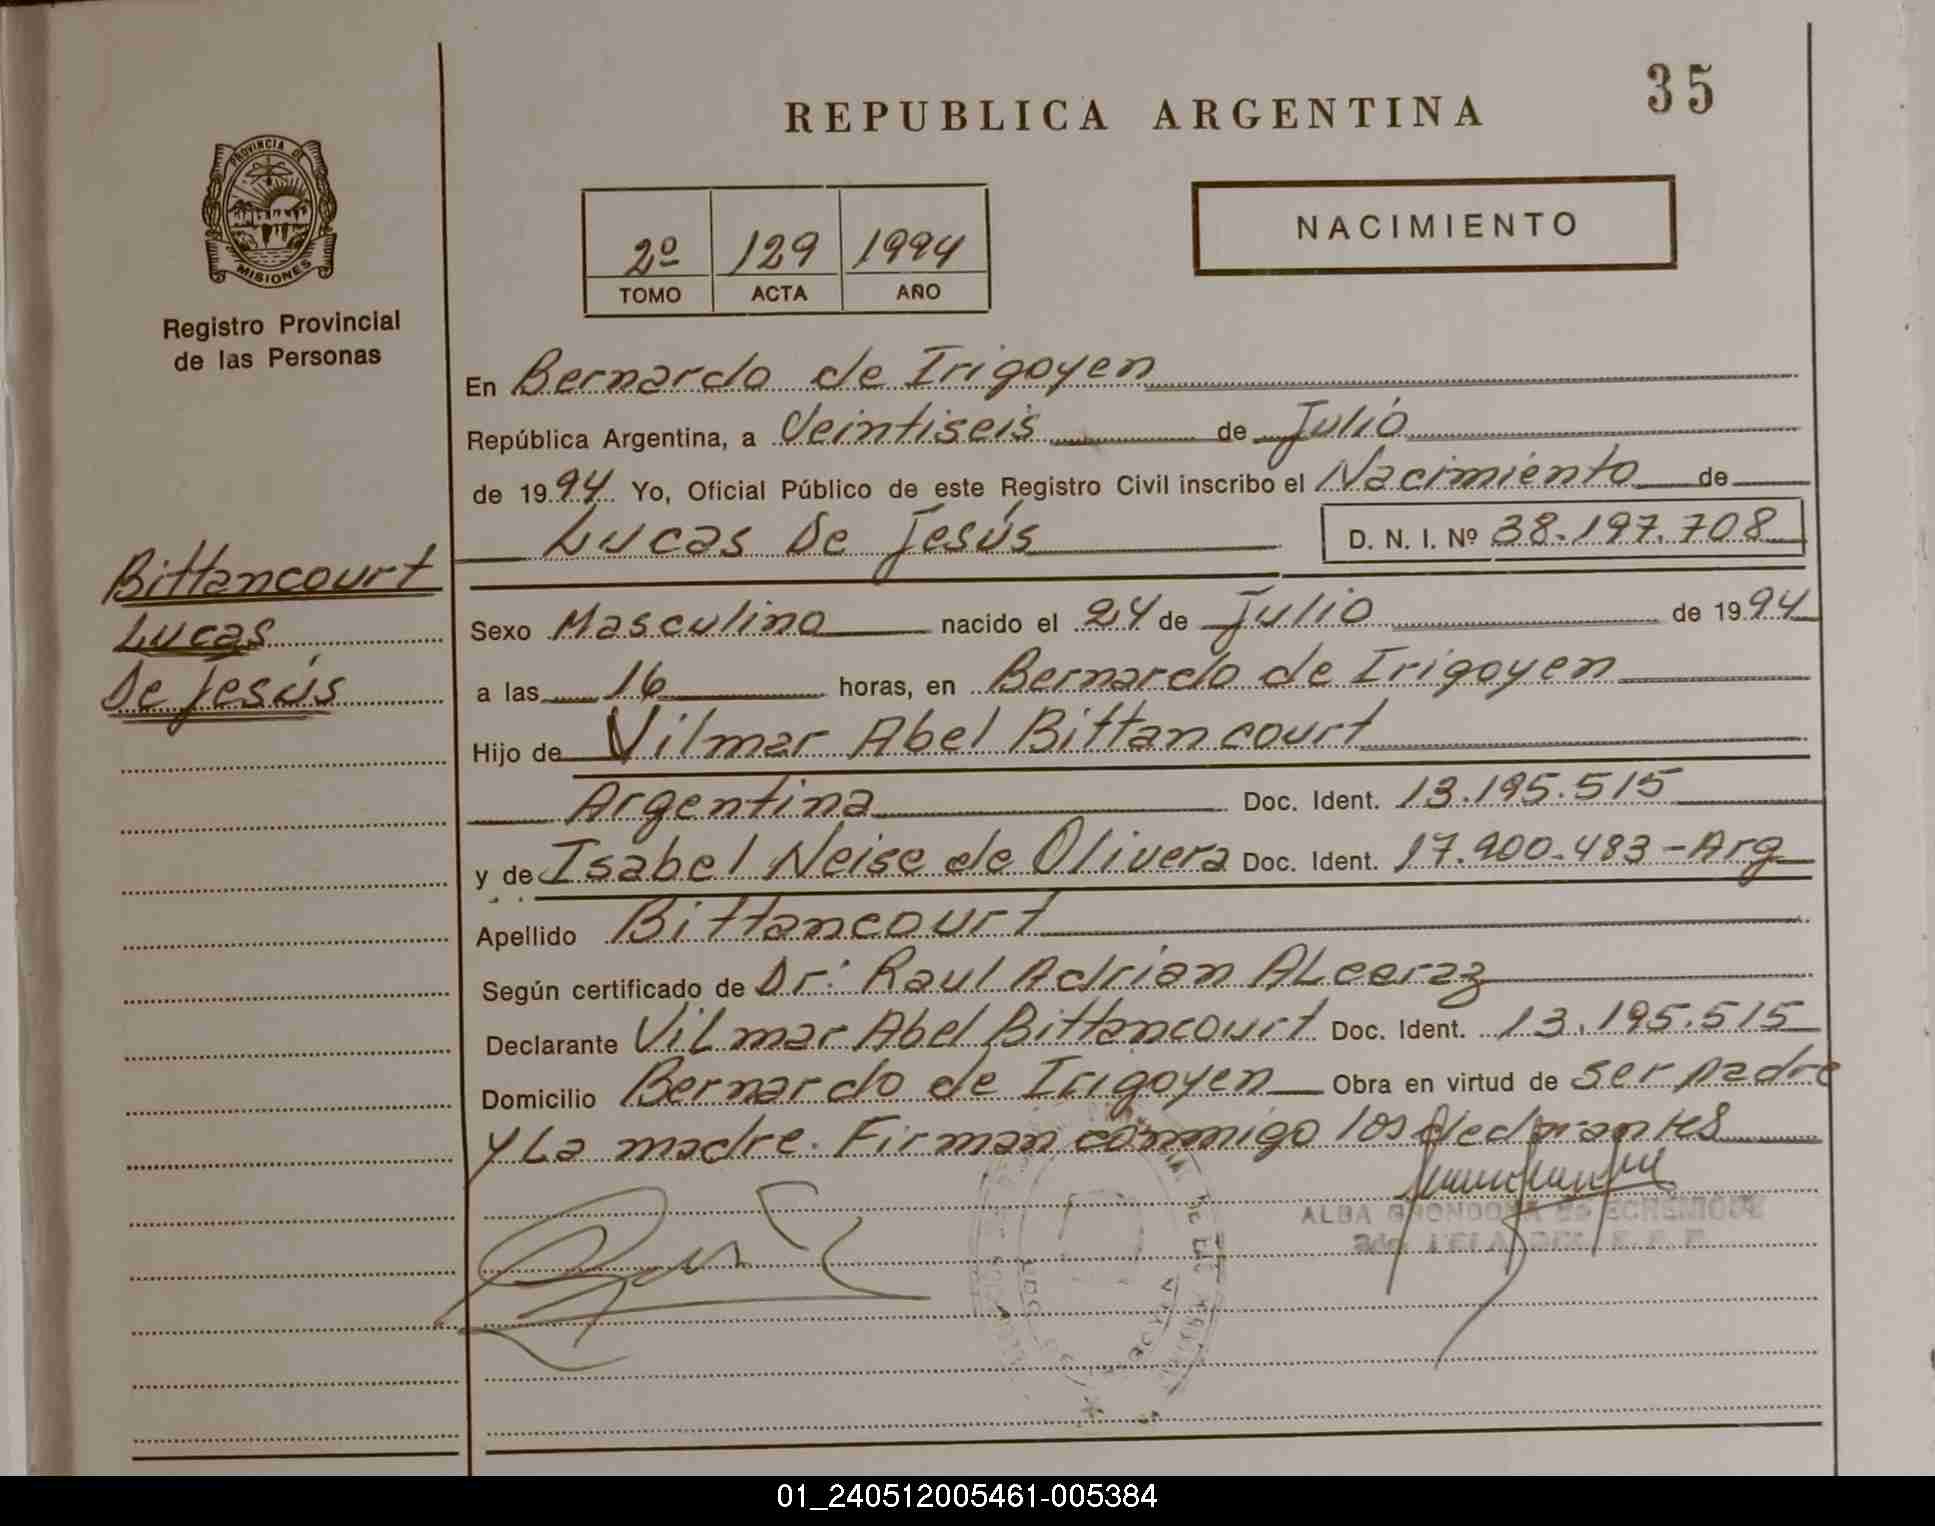 35
REPUBLICA ARGENTINA
PROVINCIA DE
MISIONES
Registro Provincial
de las Personas
2º 129 1994
TOMO ACTA AÑO
NACIMIENTO
En Bernardo de Irigoyen
República Argentina, a Veintiseis de Julio
de 1994 Yo, Oficial Público de este Registro Civil inscribo el Nacimiento de
Lucas De Jesús D. N. I. Nº 38.197.708
Bittancourt
Lucas
De Jesús
Sexo Masculino nacido el 24 de Julio de 1994
a las 16 horas, en Bernardo de Irigoyen
Hijo de Vilmar Abel Bittancourt
Argentina Doc. Ident. 13.195.515
y de Isabel Neise de Olivera Doc. Ident. 17.900.483-Arg
Apellido Bittancourt
Según certificado de Dr: Raul Adrian ALceraz
Declarante ViLmar Abel Bittancourt Doc. Ident. 13.195.515
Domicilio Bernardo de Irigoyen Obra en virtud de ser padre
y La madre. Firman conmigo los declarantes
ALBA GRONDONA DE ECHENIQUE
01_240512005461-005384